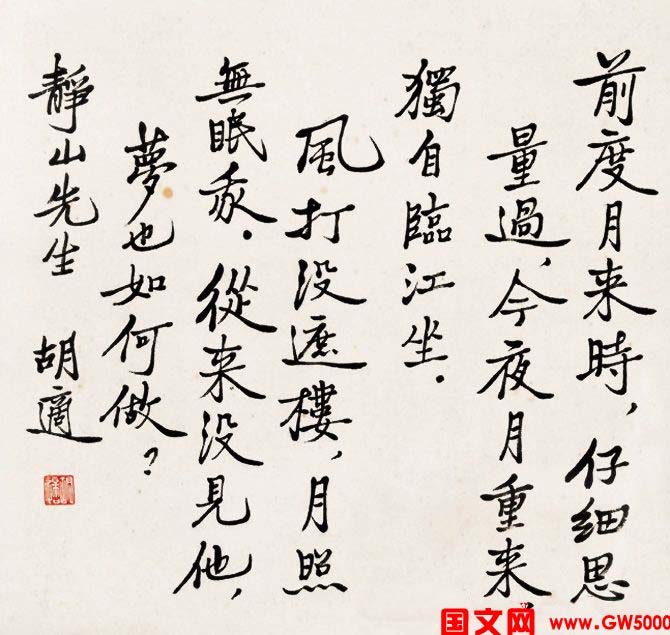 前度月来時，仔細思
量過，今夜月重来，
獨自臨江坐．
風打没遮樓，月照
無眠我．從来没見他，
夢也如何做？
靜山先生 胡適
国文网 www.GW5000